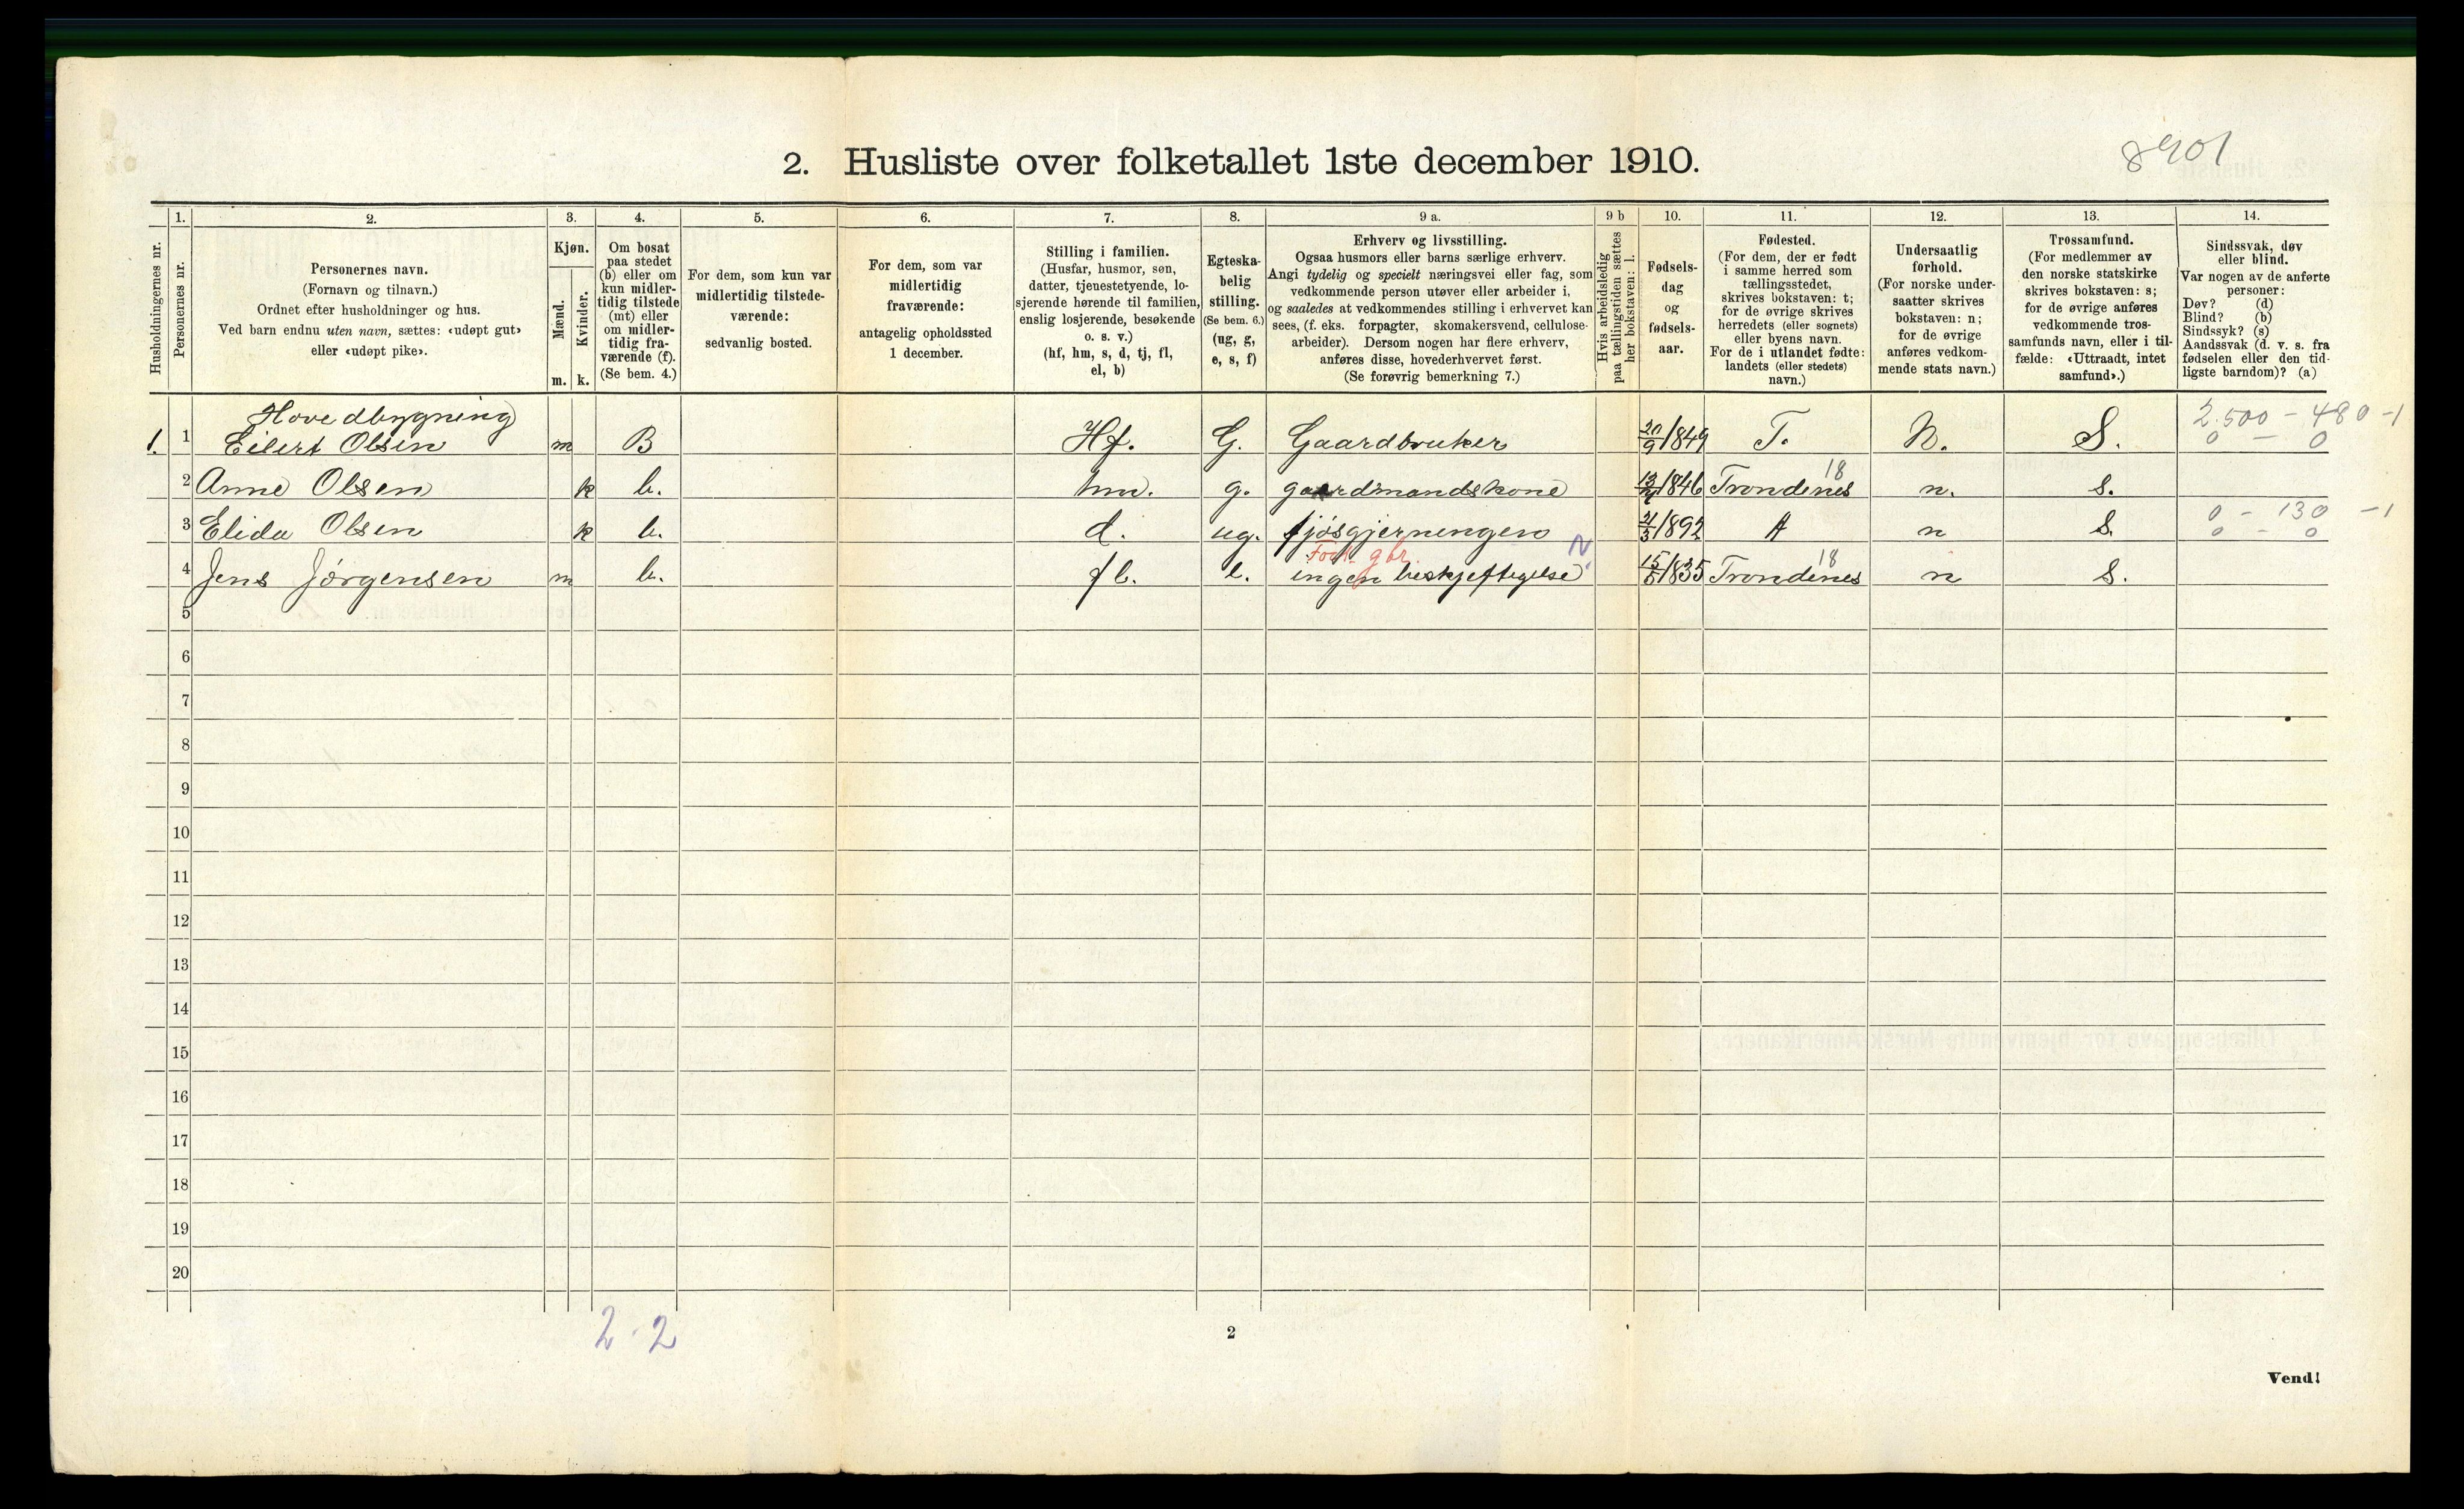 8901
2. Husliste over folketallet 1ste december 1910.
1. 2. 3. 4. 5. 6. 7. 8. 9 a. 9 b 10. 11. 12. 13. 14.
Husholdningernes nr.
Personernes nr.
Personernes navn.
(Fornavn og tilnavn.)
Ordnet efter husholdninger og hus.
Ved barn endnu uten navn, sættes: «udøpt gut»
eller «udøpt pike».
Kjøn.
Mænd.
Kvinder.
m. k.
Om bosat
paa stedet
(b) eller om
kun midler-
tidig tilstede
(mt) eller
om midler-
tidig fra-
værende (f).
(Se bem. 4.)
For dem, som kun var
midlertidig tilstede-
værende:
sedvanlig bosted.
For dem, som var
midlertidig
fraværende:
antagelig opholdssted
1 december.
Stilling i familien.
(Husfar, husmor, søn,
datter, tjenestetyende, lo-
sjerende hørende til familien,
enslig losjerende, besøkende
o. s. v.)
(hf, hm, s, d, tj, fl,
el, b)
Egteska-
belig
stilling.
(Se bem. 6.)
(ug, g,
e, s, f)
Erhverv og livsstilling.
Ogsaa husmors eller barns særlige erhverv.
Angi tydelig og specielt næringsvei eller fag, som
vedkommende person utøver eller arbeider i,
og saaledes at vedkommendes stilling i erhvervet kan
sees, (f. eks. forpagter, skomakersvend, cellulose-
arbeider). Dersom nogen har flere erhverv,
anføres disse, hovederhvervet først.
(Se forøvrig bemerkning 7.)
Hvis arbeidsledig
paa tællingstiden sættes
her bokstaven: l.
Fødsels-
dag
og
fødsels-
aar.
Fødested.
(For dem, der er født
i samme herred som
tællingsstedet,
skrives bokstaven: t;
for de øvrige skrives
herredets (eller sognets)
eller byens navn.
For de i utlandet fødte:
landets (eller stedets)
navn.)
Undersaatlig
forhold.
(For norske under-
saatter skrives
bokstaven: n;
for de øvrige
anføres vedkom-
mende stats navn.)
Trossamfund.
(For medlemmer av
den norske statskirke
skrives bokstaven: s;
for de øvrige anføres
vedkommende tros-
samfunds navn, eller i til-
fælde: «Uttraadt, intet
samfund».)
Sindssvak, døv
eller blind.
Var nogen av de anførte
personer:
Døv? (d)
Blind? (b)
Sindssyk? (s)
Aandssvak (d. v. s. fra
fødselen eller den tid-
ligste barndom)? (a)
Hovedbygning 2.500 - 480 - 1
1. 1 Eilert Olsen m B Hf. G. Gaardbruker 20/9 1849 T. N. S. 0 - 0
18
2 Anne Olsen k b. hm. g. gaardmandskone 1846 Trondenes n. s.
0 - 130 - 1
3 Elida Olsen k b. d. ug. fjøsgjerningen 1892 n S. 0 - 0
gbr. N 18
4 Jens Jörgensen m b. fl. e. ingen beskjeftigelse 15/5 1835 Trondenes n S.
5
6
7
8
9
10
11
12
13
14
15
16
17
18
19
20
2 · 2
2
Vend!